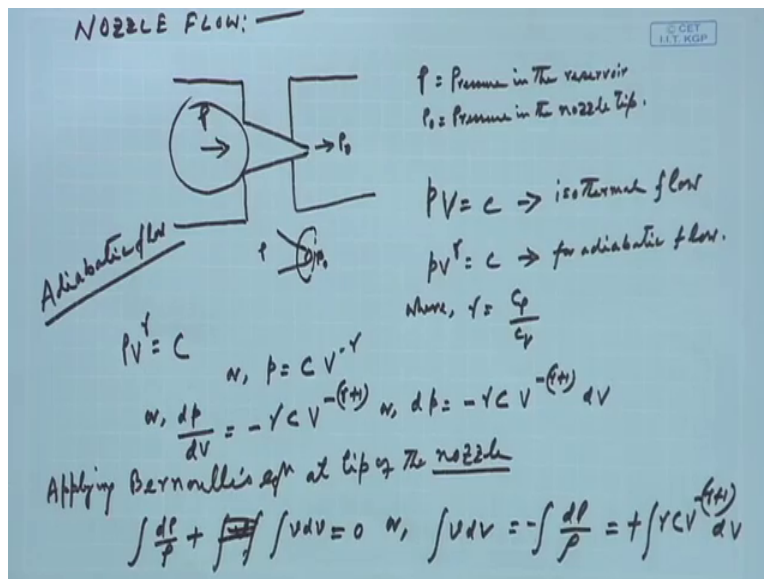 NOZZLE FLOW:—
© CET
I.I.T. KGP
P = Pressure in the reservoir
P₀ = Pressure in the nozzle tip.
P
→ P₀
PV = C → isothermal flow
Adiabatic flow
P
P₀
PV^γ = C → for adiabatic flow.
where, γ = Cp/Cv
PV^γ = C
or, p = C V^-γ
or, dp/dV = -γ C V^-(γ+1) or, dp = -γ C V^-(γ+1) dV
Applying Bernoulli's eqn at tip of the nozzle
∫ dP/ρ + ∫ ∫ v dv = 0 or, ∫ v dv = -∫ dP/ρ = + ∫ γ C V^-(γ+1) dV